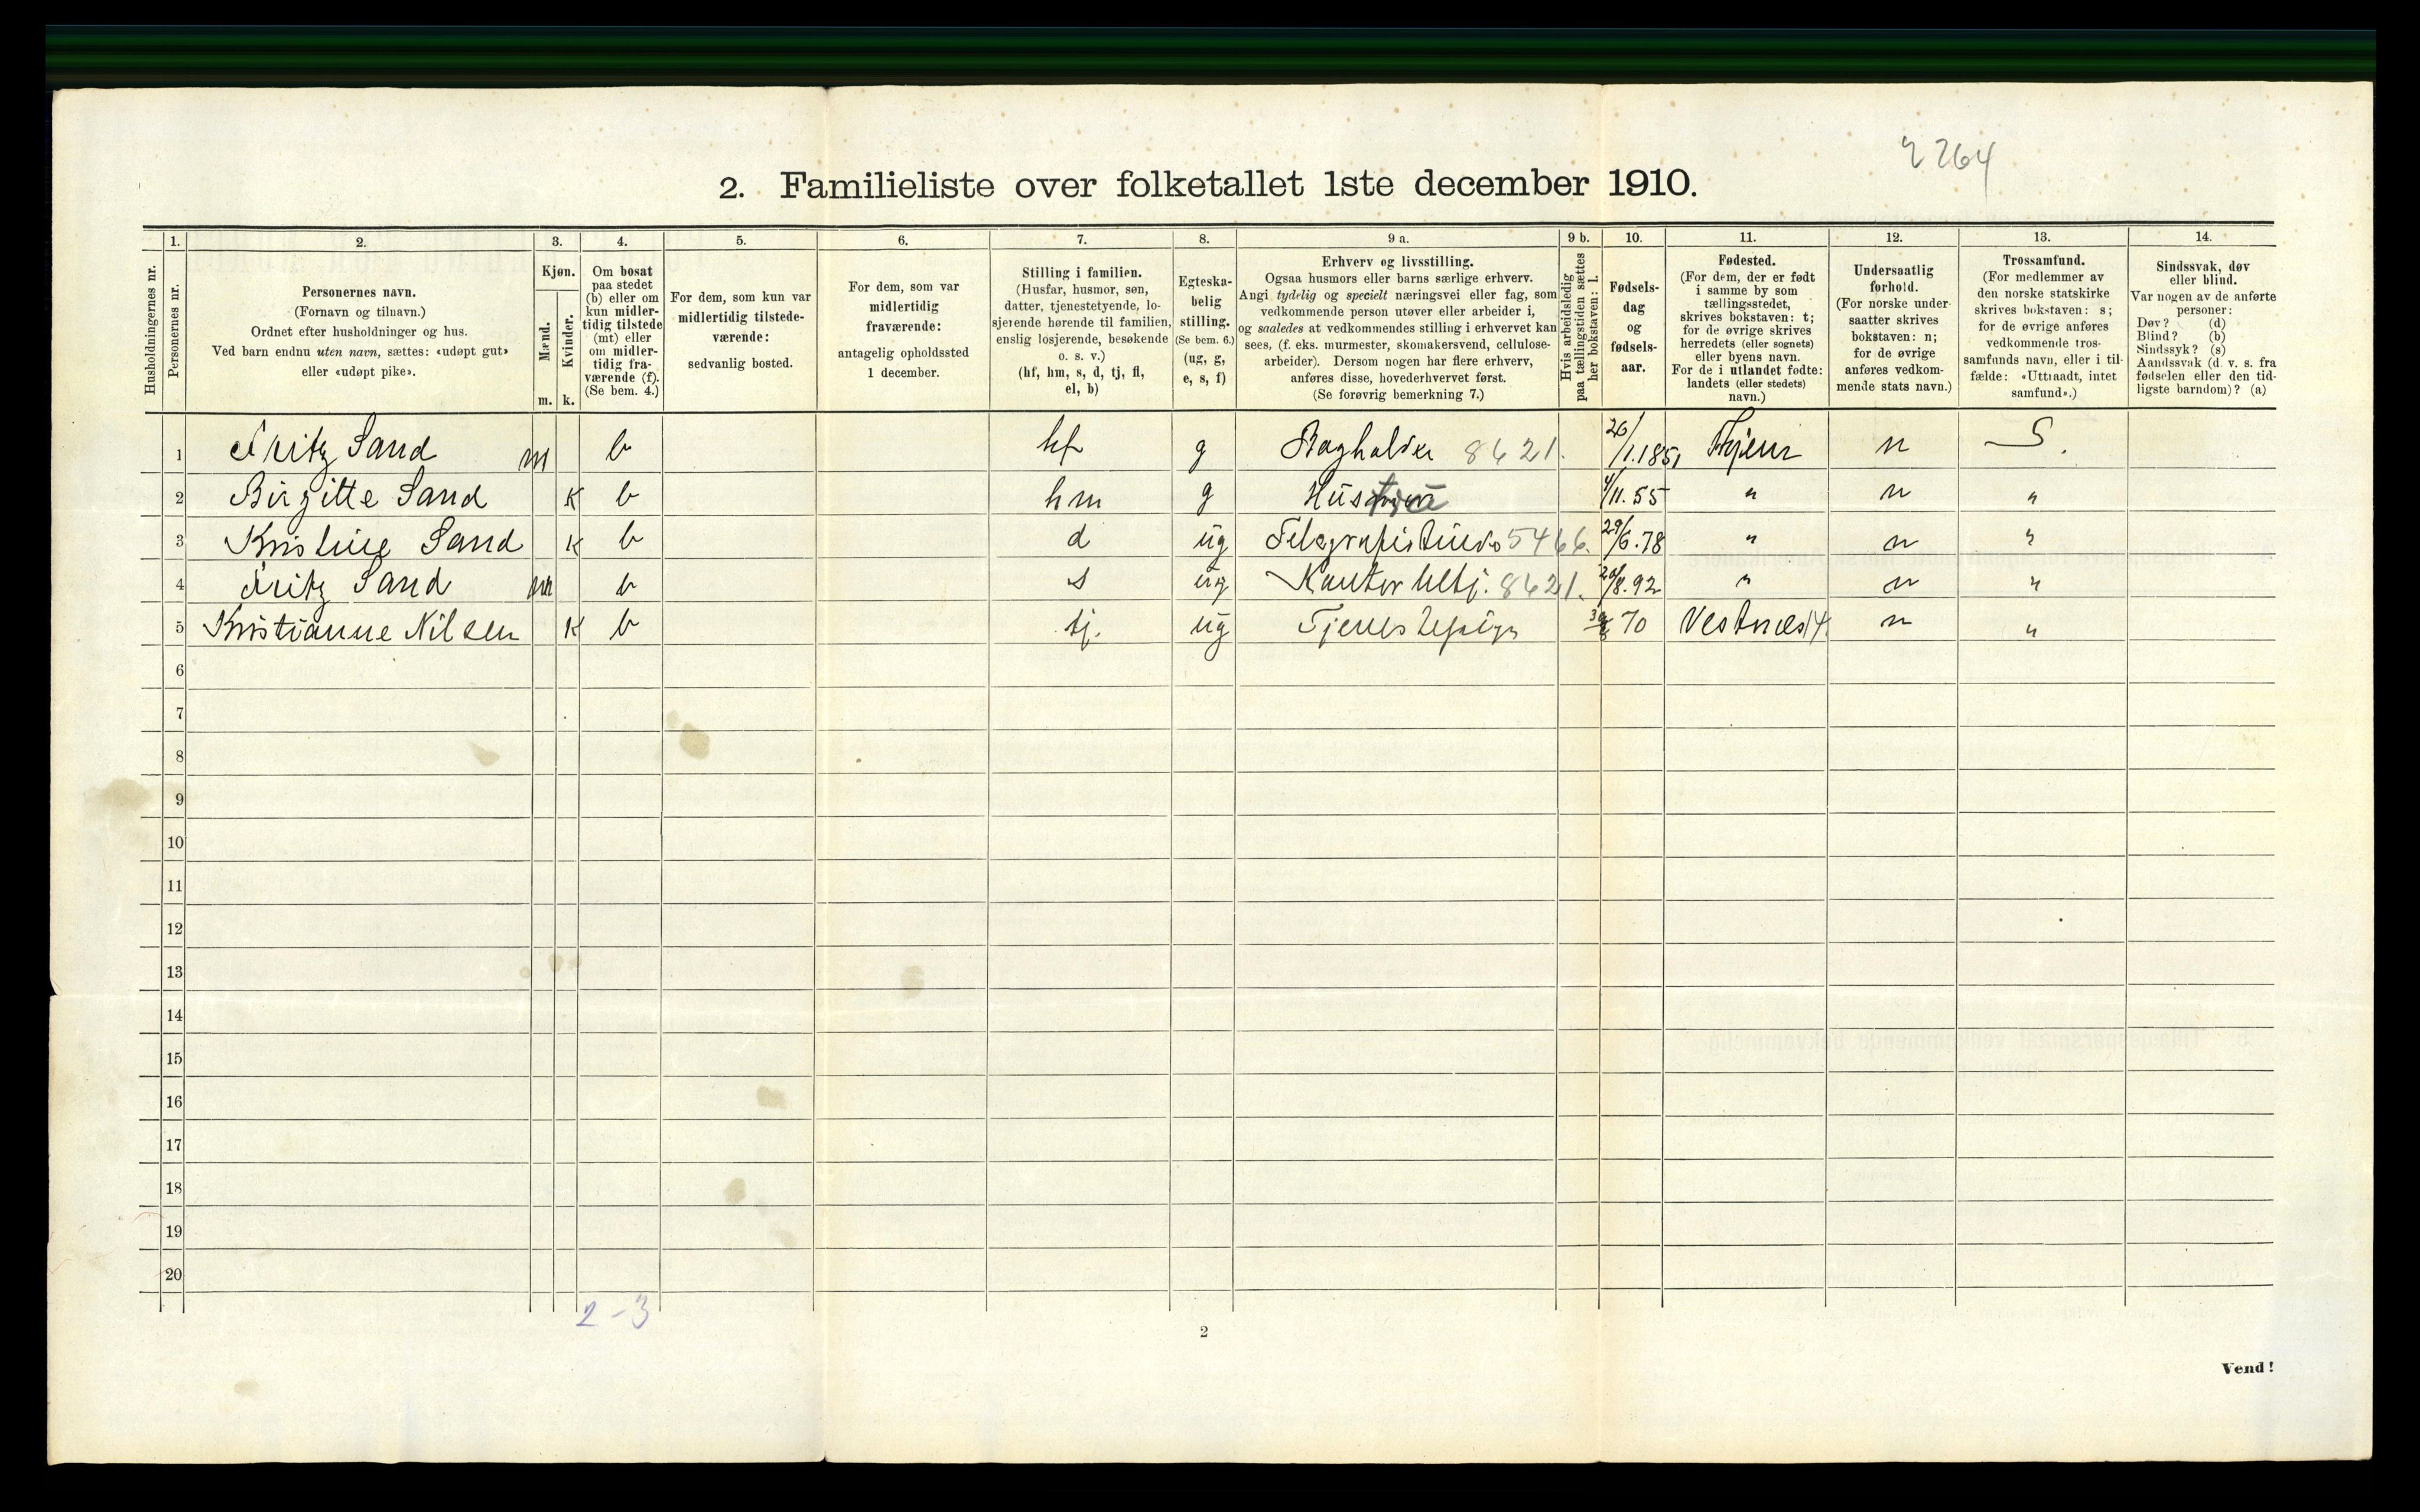 2264
2. Familieliste over folketallet 1ste december 1910.
1. 2. 3. 4. 5. 6. 7. 8. 9 a. 9 b. 10. 11. 12. 13. 14.
Husholdningernes nr.
Personernes nr.
Personernes navn.
(Fornavn og tilnavn.)
Ordnet efter husholdninger og hus.
Ved barn endnu uten navn, sættes: «udøpt gut»
eller «udøpt pike».
Kjøn.
Mænd.
Kvinder.
m. k.
Om bosat
paa stedet
(b) eller om
kun midler-
tidig tilstede
(mt) eller
om midler-
tidig fra-
værende (f).
(Se bem. 4.)
For dem, som kun var
midlertidig tilstede-
værende:
sedvanlig bosted.
For dem, som var
midlertidig
fraværende:
antagelig opholdssted
1 december.
Stilling i familien.
(Husfar, husmor, søn,
datter, tjenestetyende, lo-
sjerende hørende til familien,
enslig losjerende, besøkende
o. s. v.)
(hf, hm, s, d, tj, fl,
el, b)
Egteska-
belig
stilling.
(Se bem. 6.)
(ug, g,
e, s, f)
Erhverv og livsstilling.
Ogsaa husmors eller barns særlige erhverv.
Angi tydelig og specielt næringsvei eller fag, som
vedkommende person utøver eller arbeider i,
og saaledes at vedkommendes stilling i erhvervet kan
sees, (f. eks. murmester, skomakersvend, cellulose-
arbeider). Dersom nogen har flere erhverv,
anføres disse, hovederhvervet først.
(Se forøvrig bemerkning 7.)
Hvis arbeidsledig
paa tællingstiden sættes
her bokstaven: l.
Fødsels-
dag
og
fødsels-
aar.
Fødested.
(For dem, der er født
i samme by som
tællingsstedet,
skrives bokstaven: t;
for de øvrige skrives
herredets (eller sognets)
eller byens navn.
For de i utlandet fødte:
landets (eller stedets)
navn.)
Undersaatlig
forhold.
(For norske under-
saatter skrives
bokstaven: n;
for de øvrige
anføres vedkom-
mende stats navn.)
Trossamfund.
(For medlemmer av
den norske statskirke
skrives bokstaven: s;
for de øvrige anføres
vedkommende tros-
samfunds navn, eller i til-
fælde: «Uttraadt, intet
samfund».)
Sindssvak, døv
eller blind.
Var nogen av de anførte
personer:
Døv? (d)
Blind? (b)
Sindssyk? (s)
Aandssvak (d. v. s. fra
fødselen eller den tid-
ligste barndom)? (a)
1 Fritz Sand m b hf g Bogholder 8621. 26/1.1851 Hjem n S.
2 Birgitte Sand K b hm g Hustru 4/11.55 " n "
3 Kristine Sand K b d ug Telegrafistinde 5466. 29/6.78 " n "
4 Fritz Sand m b s ug Kontorbetj. 8621. /8.92 " n "
5 Kristianne Nilsen K b tj. ug Tjenestepige 70 Vestnes 14 n "
6
7
8
9
10
11
12
13
14
15
16
17
18
19
20
2-3
2
Vend!